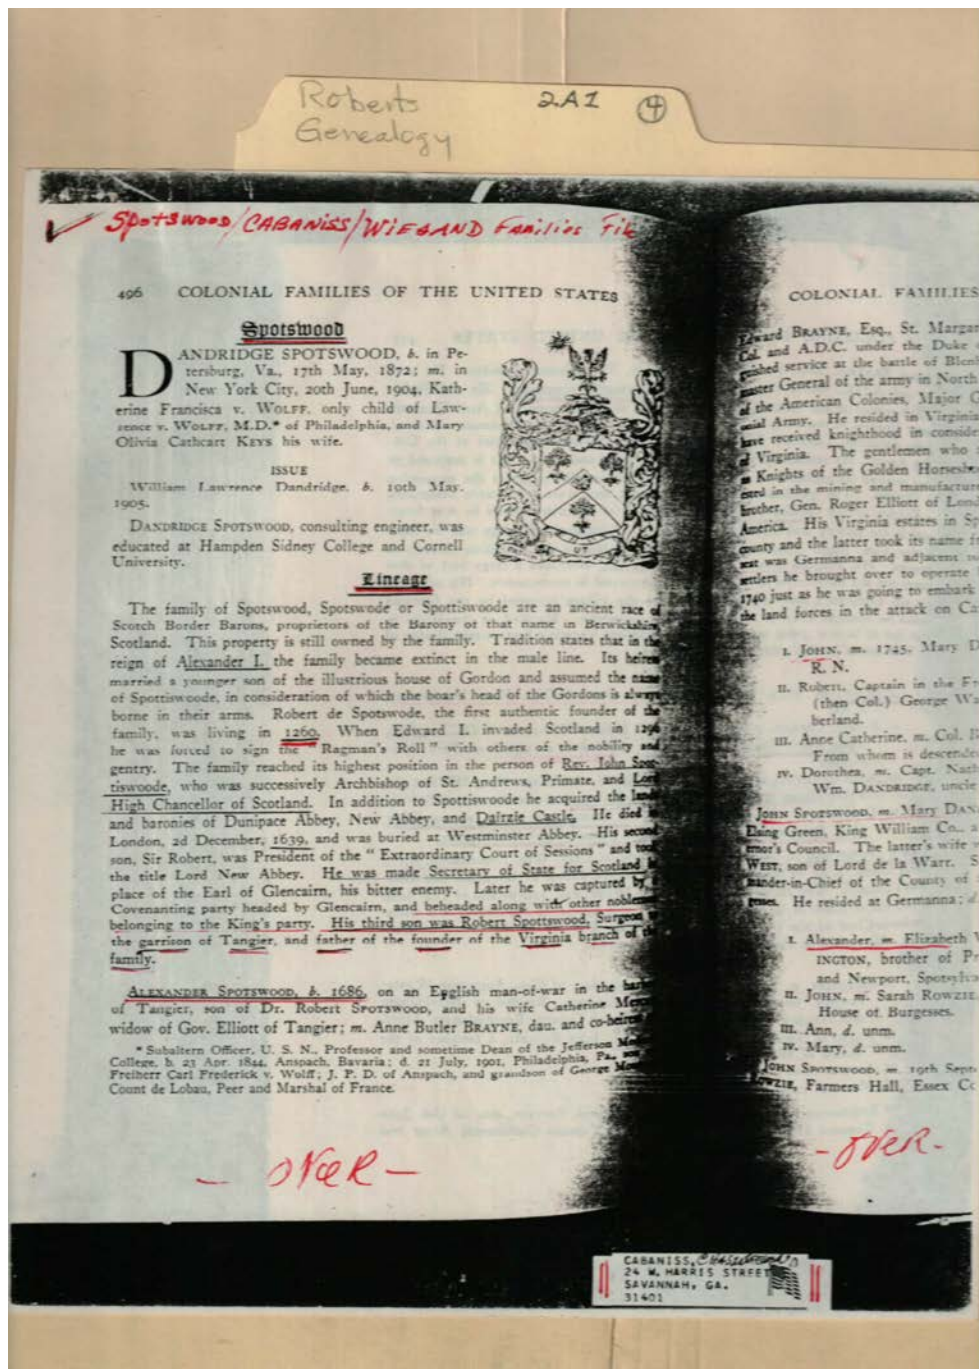 Roberts
Genealogy
2A1 4
Spotswood/CABANISS/WIEGAND Families File
496 COLONIAL FAMILIES OF THE UNITED STATES
Spotswood
DANDRIDGE SPOTSWOOD, b. in Pe-
tersburg, Va., 17th May, 1872; m. in
New York City, 20th June, 1904, Kath-
erine Francisca v. WOLFF, only child of Law-
rence v. WOLFF, M.D.* of Philadelphia, and Mary
Olivia Cathcart KEYS his wife.
ISSUE
William Lawrence Dandridge, b. 19th May,
1905.
DANDRIDGE SPOTSWOOD, consulting engineer, was
educated at Hampden Sidney College and Cornell
University.
UT
Lineage
The family of Spotswood, Spotswode or Spottiswoode are an ancient race of
Scotch Border Barons, proprietors of the Barony of that name in Berwickshire
Scotland. This property is still owned by the family. Tradition states that in the
reign of Alexander I. the family became extinct in the male line. Its heiress
married a younger son of the illustrious house of Gordon and assumed the name
of Spottiswoode, in consideration of which the boar's head of the Gordons is always
borne in their arms. Robert de Spotswode, the first authentic founder of the
family, was living in 1260. When Edward I. invaded Scotland in 1296
he was forced to sign the "Ragman's Roll" with others of the nobility and
gentry. The family reached its highest position in the person of Rev. John Spot-
tiswoode, who was successively Archbishop of St. Andrews, Primate, and Lord
High Chancellor of Scotland. In addition to Spottiswoode he acquired the lands
and baronies of Dunipace Abbey, New Abbey, and Dalrzle Castle. He died in
London, 2d December, 1639, and was buried at Westminster Abbey. His second
son, Sir Robert, was President of the "Extraordinary Court of Sessions" and took
the title Lord New Abbey. He was made Secretary of State for Scotland in
place of the Earl of Glencairn, his bitter enemy. Later he was captured by
Covenanting party headed by Glencairn, and beheaded along with other noblemen
belonging to the King's party. His third son was Robert Spottswood, Surgeon to
the garrison of Tangier, and father of the founder of the Virginia branch of the
family.
ALEXANDER SPOTSWOOD, b. 1686, on an English man-of-war in the harbor
of Tangier, son of Dr. Robert SPOTSWOOD, and his wife Catherine
widow of Gov. Elliott of Tangier; m. Anne Butler BRAYNE, dau. and co-heiress
* Subaltern Officer, U. S. N., Professor and sometime Dean of the Jefferson
College, b. 23 Apr. 1844, Anspach, Bavaria; d. 21 July, 1901, Philadelphia, Pa., son
Freiherr Carl Frederick v. Wolff; J. P. D. of Anspach, and grandson of George
Count de Lobau, Peer and Marshal of France.
- OVER -
COLONIAL FAMILIES
Edward BRAYNE, Esq., St. Margar
Col. and A.D.C. under the Duke
guished service at the battle of Blen
master General of the army in North
of the American Colonies, Major G
onial Army. He resided in Virginia
have received knighthood in conside
of Virginia. The gentlemen who
as Knights of the Golden Horsesh
ested in the mining and manufacture
brother, Gen. Roger Elliott of Lon
America. His Virginia estates in Sp
county and the latter took its name fr
seat was Germanna and adjacent
settlers he brought over to operate
1740 just as he was going to embark
the land forces in the attack on Ca
I. JOHN, m. 1745, Mary D
R. N.
II. Robert, Captain in the Fr
(then Col.) George Wa
berland.
III. Anne Catherine, m. Col.
From whom is descende
IV. Dorothea, m. Capt. Nath
Wm. DANDRIDGE, uncle
JOHN SPOTSWOOD, m. Mary DAN
Elsing Green, King William Co.,
ernor's Council. The latter's wife
WEST, son of Lord de la Warr. S
mander-in-Chief of the County of
gesses. He resided at Germanna; d.
I. Alexander, m. Elizabeth
INGTON, brother of Pr
and Newport, Spotsylva
II. JOHN, m. Sarah ROWZIE
House of Burgesses.
III. Ann, d. unm.
IV. Mary, d. unm.
JOHN SPOTSWOOD, m. 19th Sept.
ROWZIE, Farmers Hall, Essex Co
- OVER -
CABANISS,
24 W. HARRIS STREET
SAVANNAH, GA.
31401